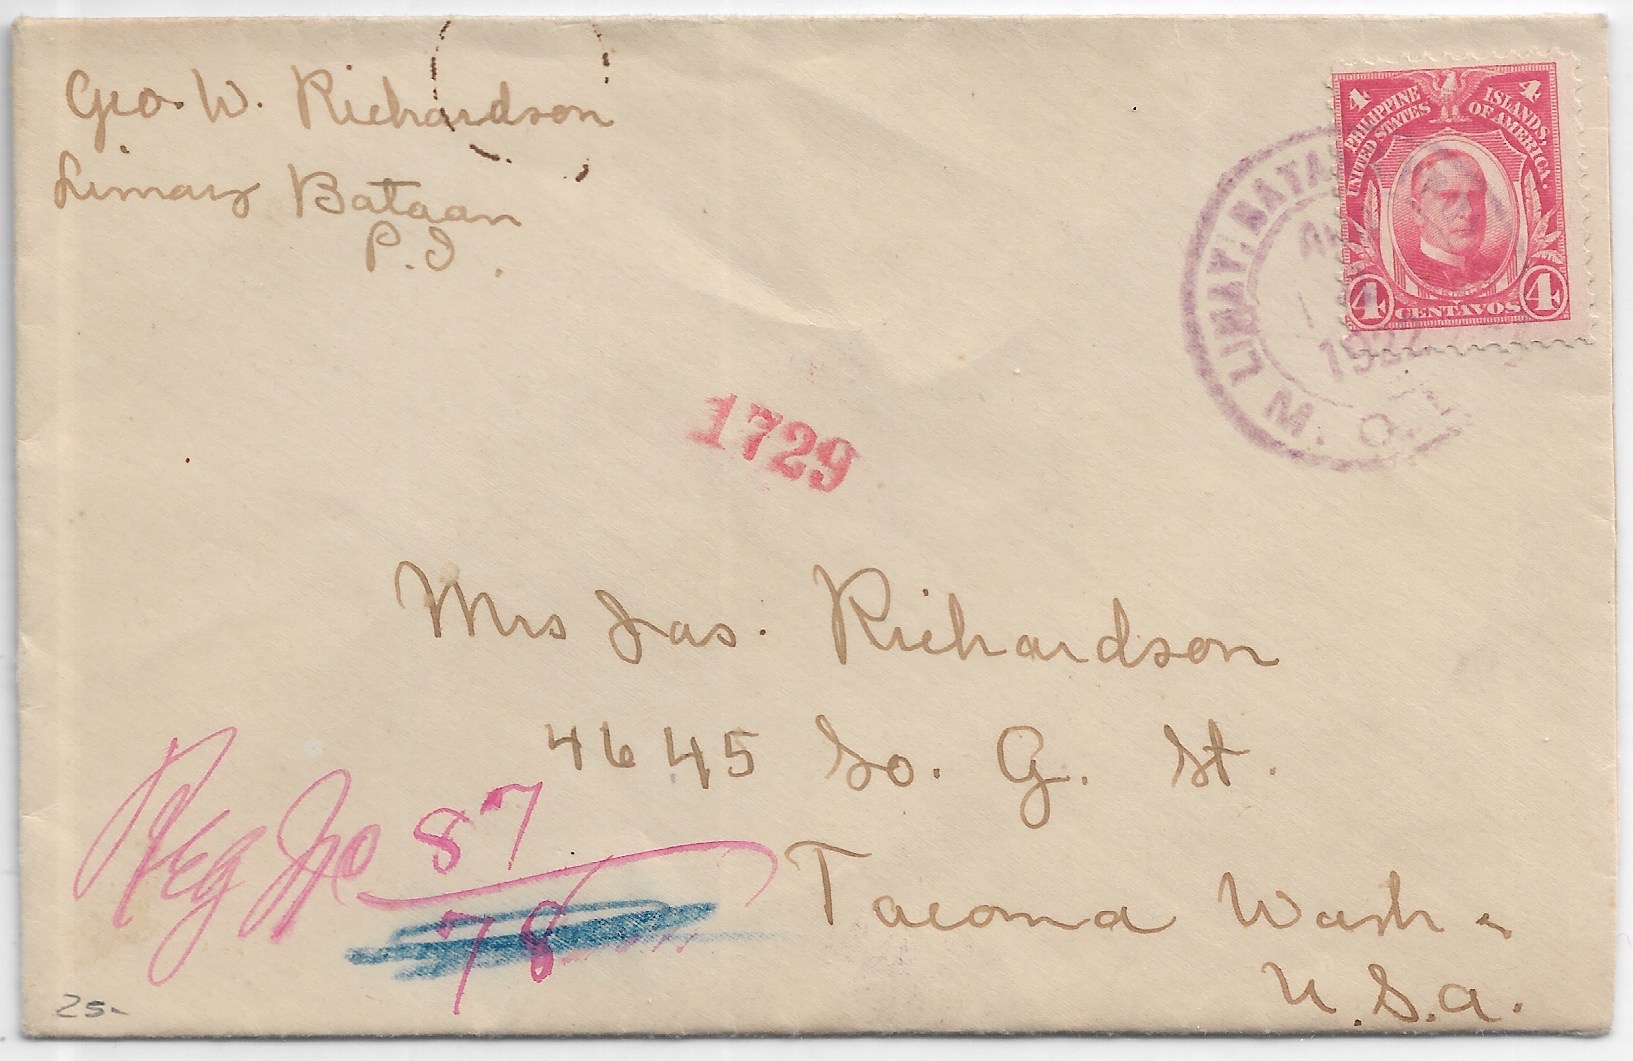 Geo. W. Richardson
Limay Bataan
P.I.
4 4
PHILIPPINE ISLANDS
UNITED STATES OF AMERICA.
4 CENTAVOS 4
LIMAY, BATAAN
M. O.
1729
Mrs Jas. Richardson
4645 So. G. St.
Tacoma Wash -
U.S.A.
Reg No 87
78
25-